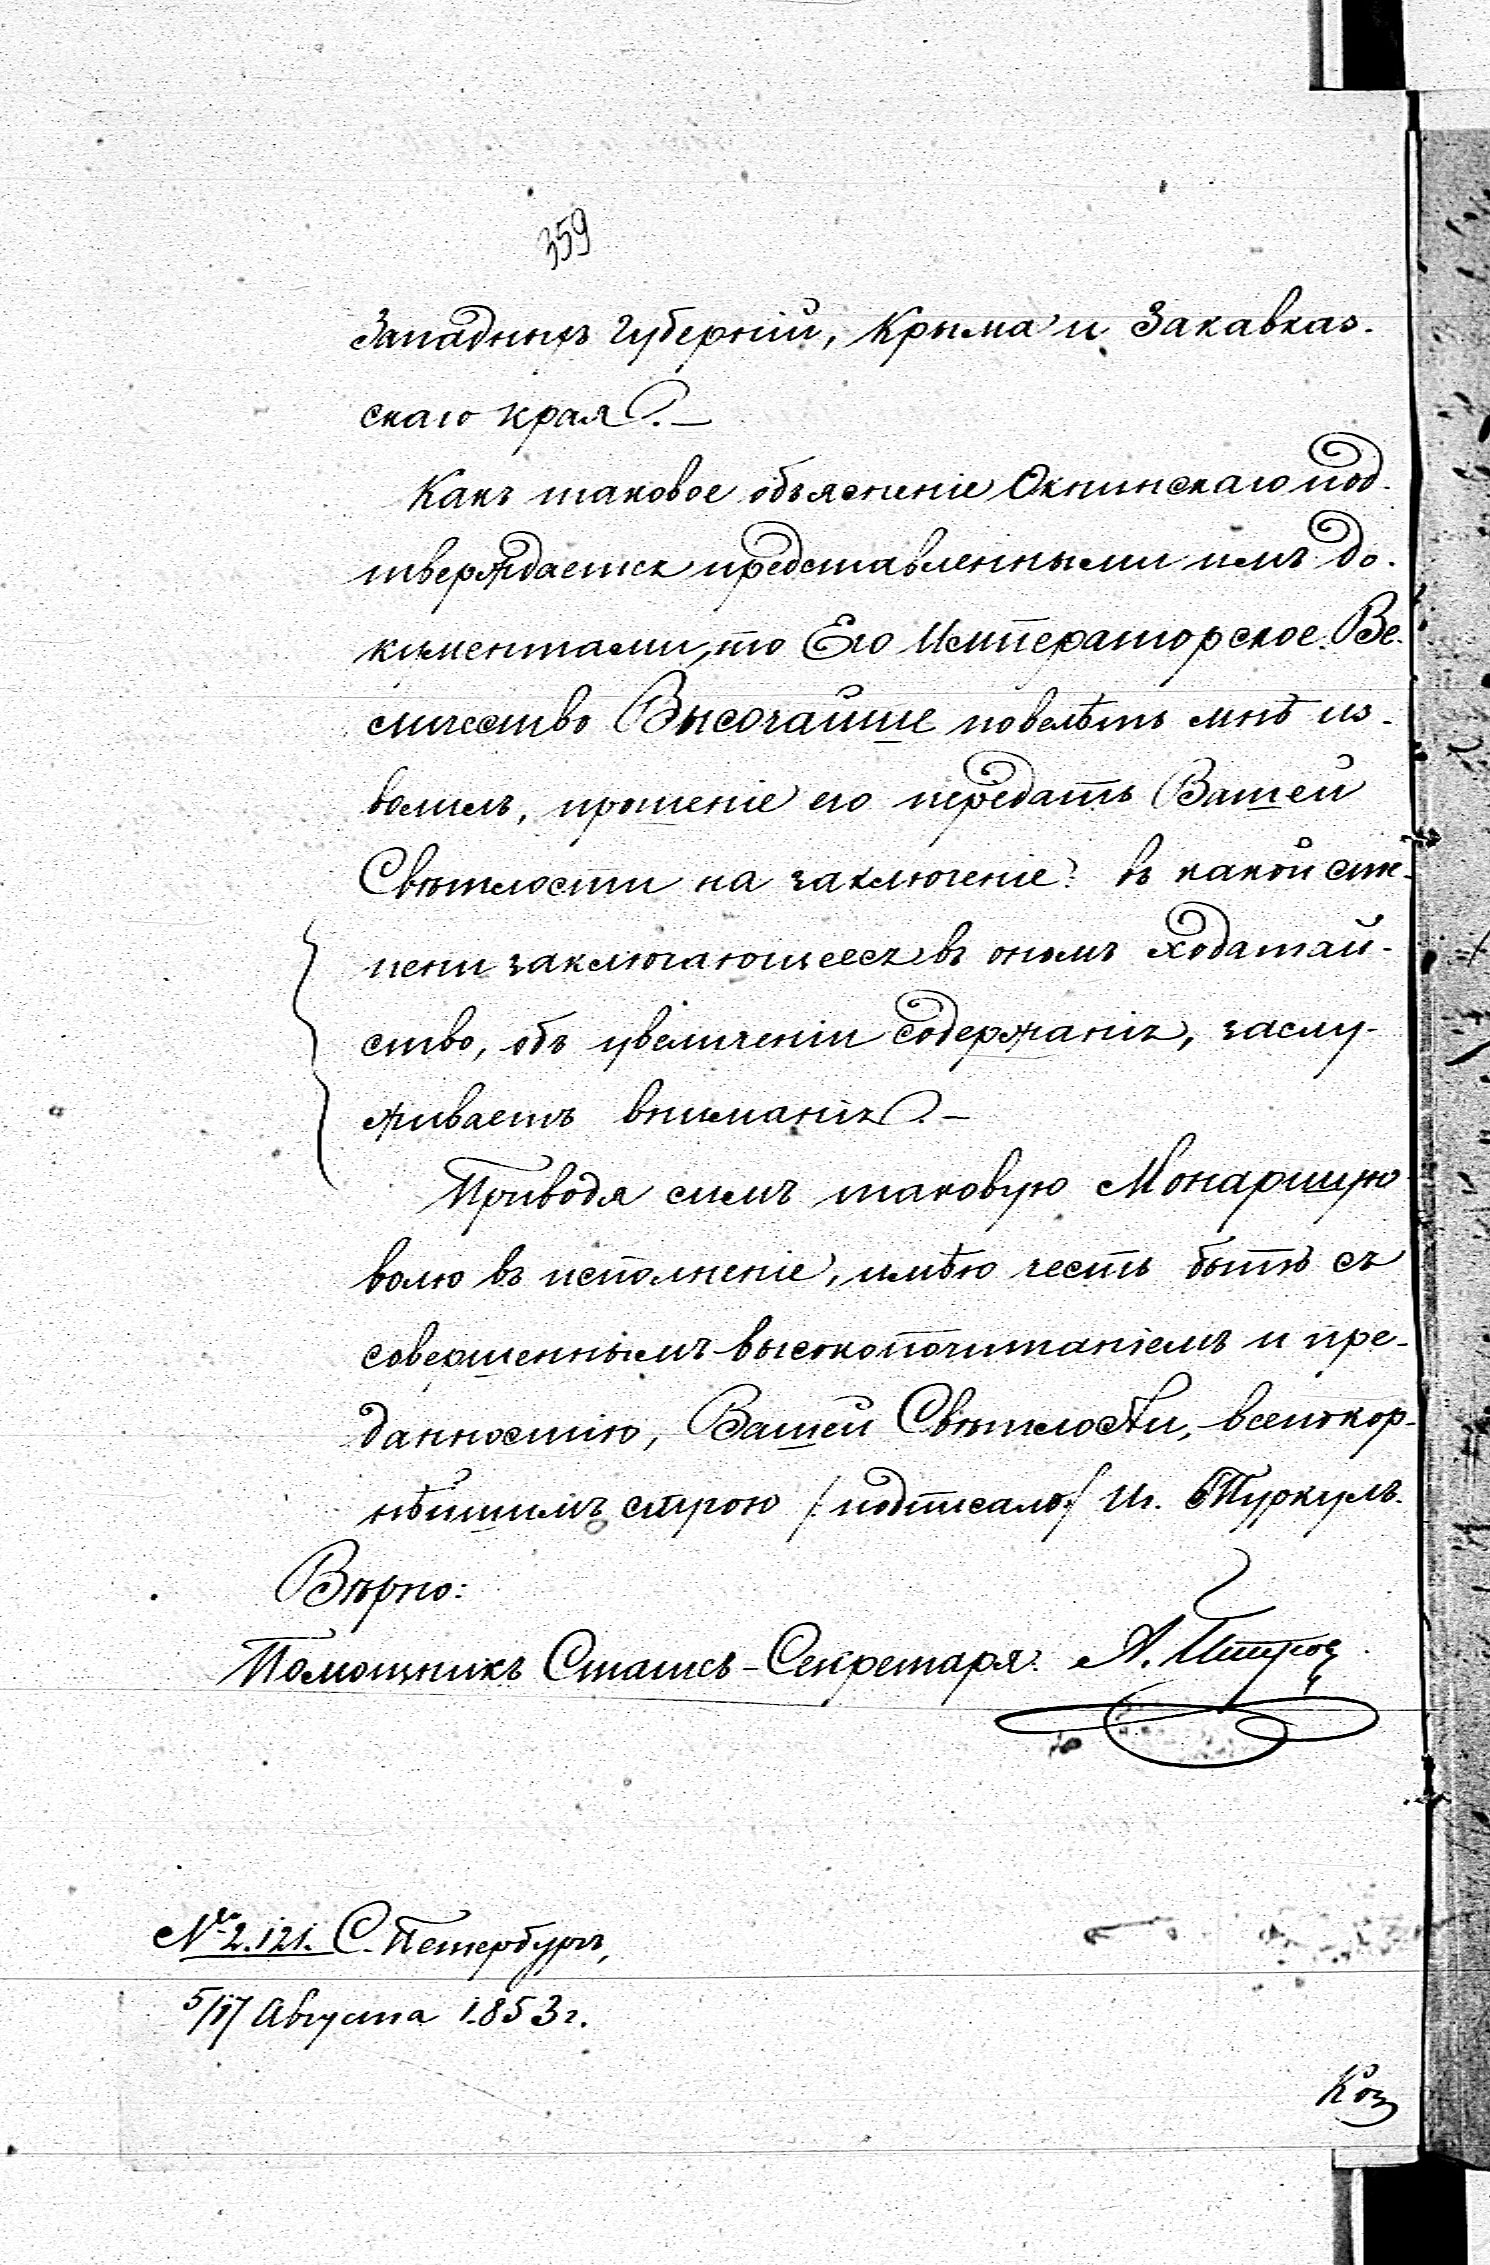 359
Западныхъ Губерній, Крыма и Закавказ-
скаго края.—
Какъ таковое объясненіе Окнинскаго под-
тверждается представленными имъ до-
кументами, то Его Императорское Ве-
личество Высочайше повелѣть мнѣ из-
волилъ, прошеніе его передать Вашей
Свѣтлости на заключеніе: въ какой сте-
пени заключающееся въ ономъ ходатай-
ство, объ увеличеніи содержанія, заслу-
живаетъ вниманія.—
Приводя симъ таковую Монаршую
волю въ исполненіе, имѣю честь быть съ
совершеннымъ высокопочитаніемъ и пре-
данностію, Вашей Свѣтлости, всепокор-
нѣйшимъ слугою /:подписалъ:/ И. Туркулъ.
Вѣрно:
Помощникъ Статсъ-Секретаря: А.
№ 2.121. С. Петербургъ,
5/17 Августа 1853 г.